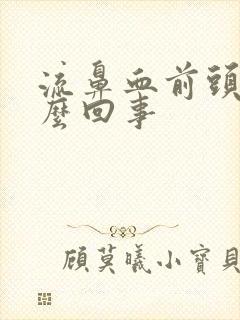 流鼻血前頭
麼回事
顧莫曦小寶貝